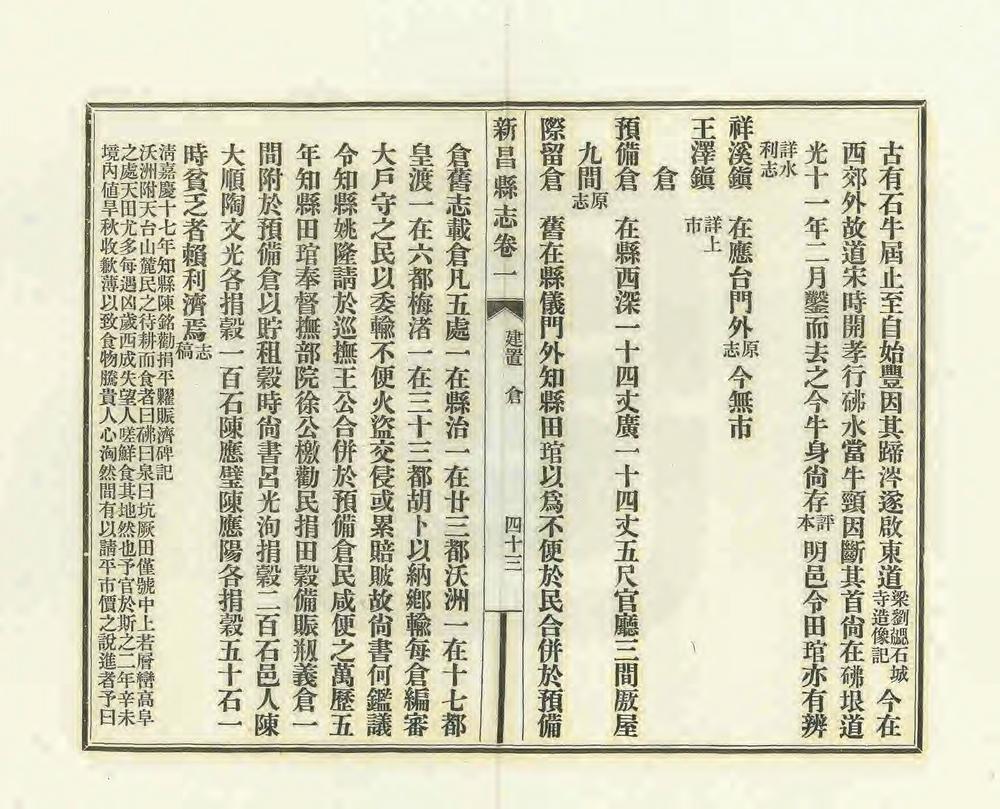 古有石牛屆止至自始豐因其蹄涔遂啟東道梁劉勰石城寺造像記今在
西郊外故道宋時開孝行砩水當牛頸因斷其首尙在砩埌道
光十一年二月鑿而去之今牛身尙存評本明邑令田琯亦有辨
詳水利志
祥溪鎭 在應台門外原志今無市
王澤鎭 詳上市
倉
預備倉 在縣西深一十四丈廣一十四丈五尺官廳三間廒屋
九間原志
際留倉 舊在縣儀門外知縣田琯以爲不便於民合併於預備
新昌縣志卷一 建置 倉 四十三
倉舊志載倉凡五處一在縣治一在廿三都沃洲一在十七都
皇渡一在六都梅渚一在三十三都胡卜以納鄕輸每倉編審
大戶守之民以委輸不便火盜交侵或累賠貱故尙書何鑑議
令知縣姚隆請於巡撫王公合併於預備倉民咸便之萬歷五
年知縣田琯奉督撫部院徐公檄勸民捐田穀備賑剏義倉一
間附於預備倉以貯租穀時尙書呂光洵捐穀二百石邑人陳
大順陶文光各捐穀一百石陳應璧陳應陽各捐穀五十石一
時貧乏者賴利濟焉志稿
淸嘉慶十七年知縣陳銘勸捐平糶賑濟碑記
沃洲附天台山麓民之待耕而食者曰砩曰泉曰坑厥田僅號中上若層巒高阜
之處天田尤多每遇凶歲西成失望人嗟鮮食其地然也予官於斯之二年辛未
境內値旱秋收歉薄以致食物騰貴人心洶然間有以請平市價之說進者予曰